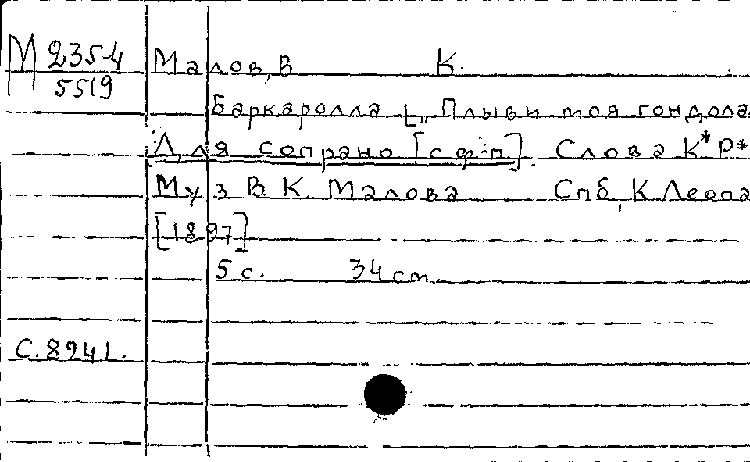 М 235-4
5519
Малов, В К.
Баркаролла [„Плыви моя гондола
Для сопрано [с ф-п]. Слова К* Р*
Муз В. К. Малова Спб, К Леопа
[1897]
5 с. 34 cm
С. 8941.